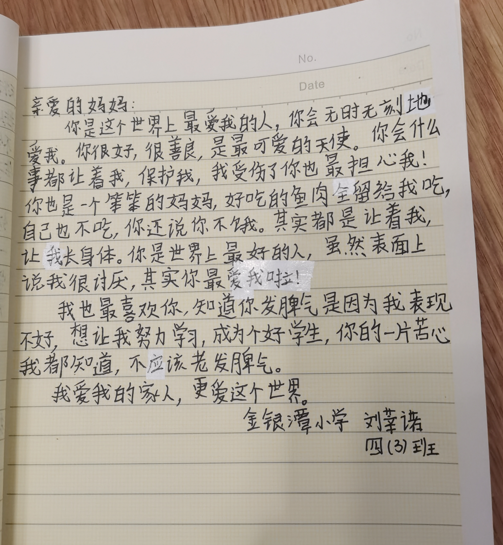 No.
Date
亲爱的妈妈:
你是这个世界上最爱我的人，你会无时无刻地
爱我。你很好，很善良，是最可爱的天使。你会什么
事都让着我，保护我，我受伤了你也最担心我！
你也是一个笨笨的妈妈，好吃的鱼肉全留给我吃，
自己也不吃，你还说你不饿。其实都是让着我，
让我长身体。你是世界上最好的人，虽然表面上
说我很讨厌，其实你最爱我啦！
我也最喜欢你，知道你发脾气是因为我表现
不好，想让我努力学习，成为个好学生，你的一片苦心
我都知道，不应该老发脾气。
我爱我的家人，更爱这个世界。
金银潭小学 刘莘诺
四(3)班